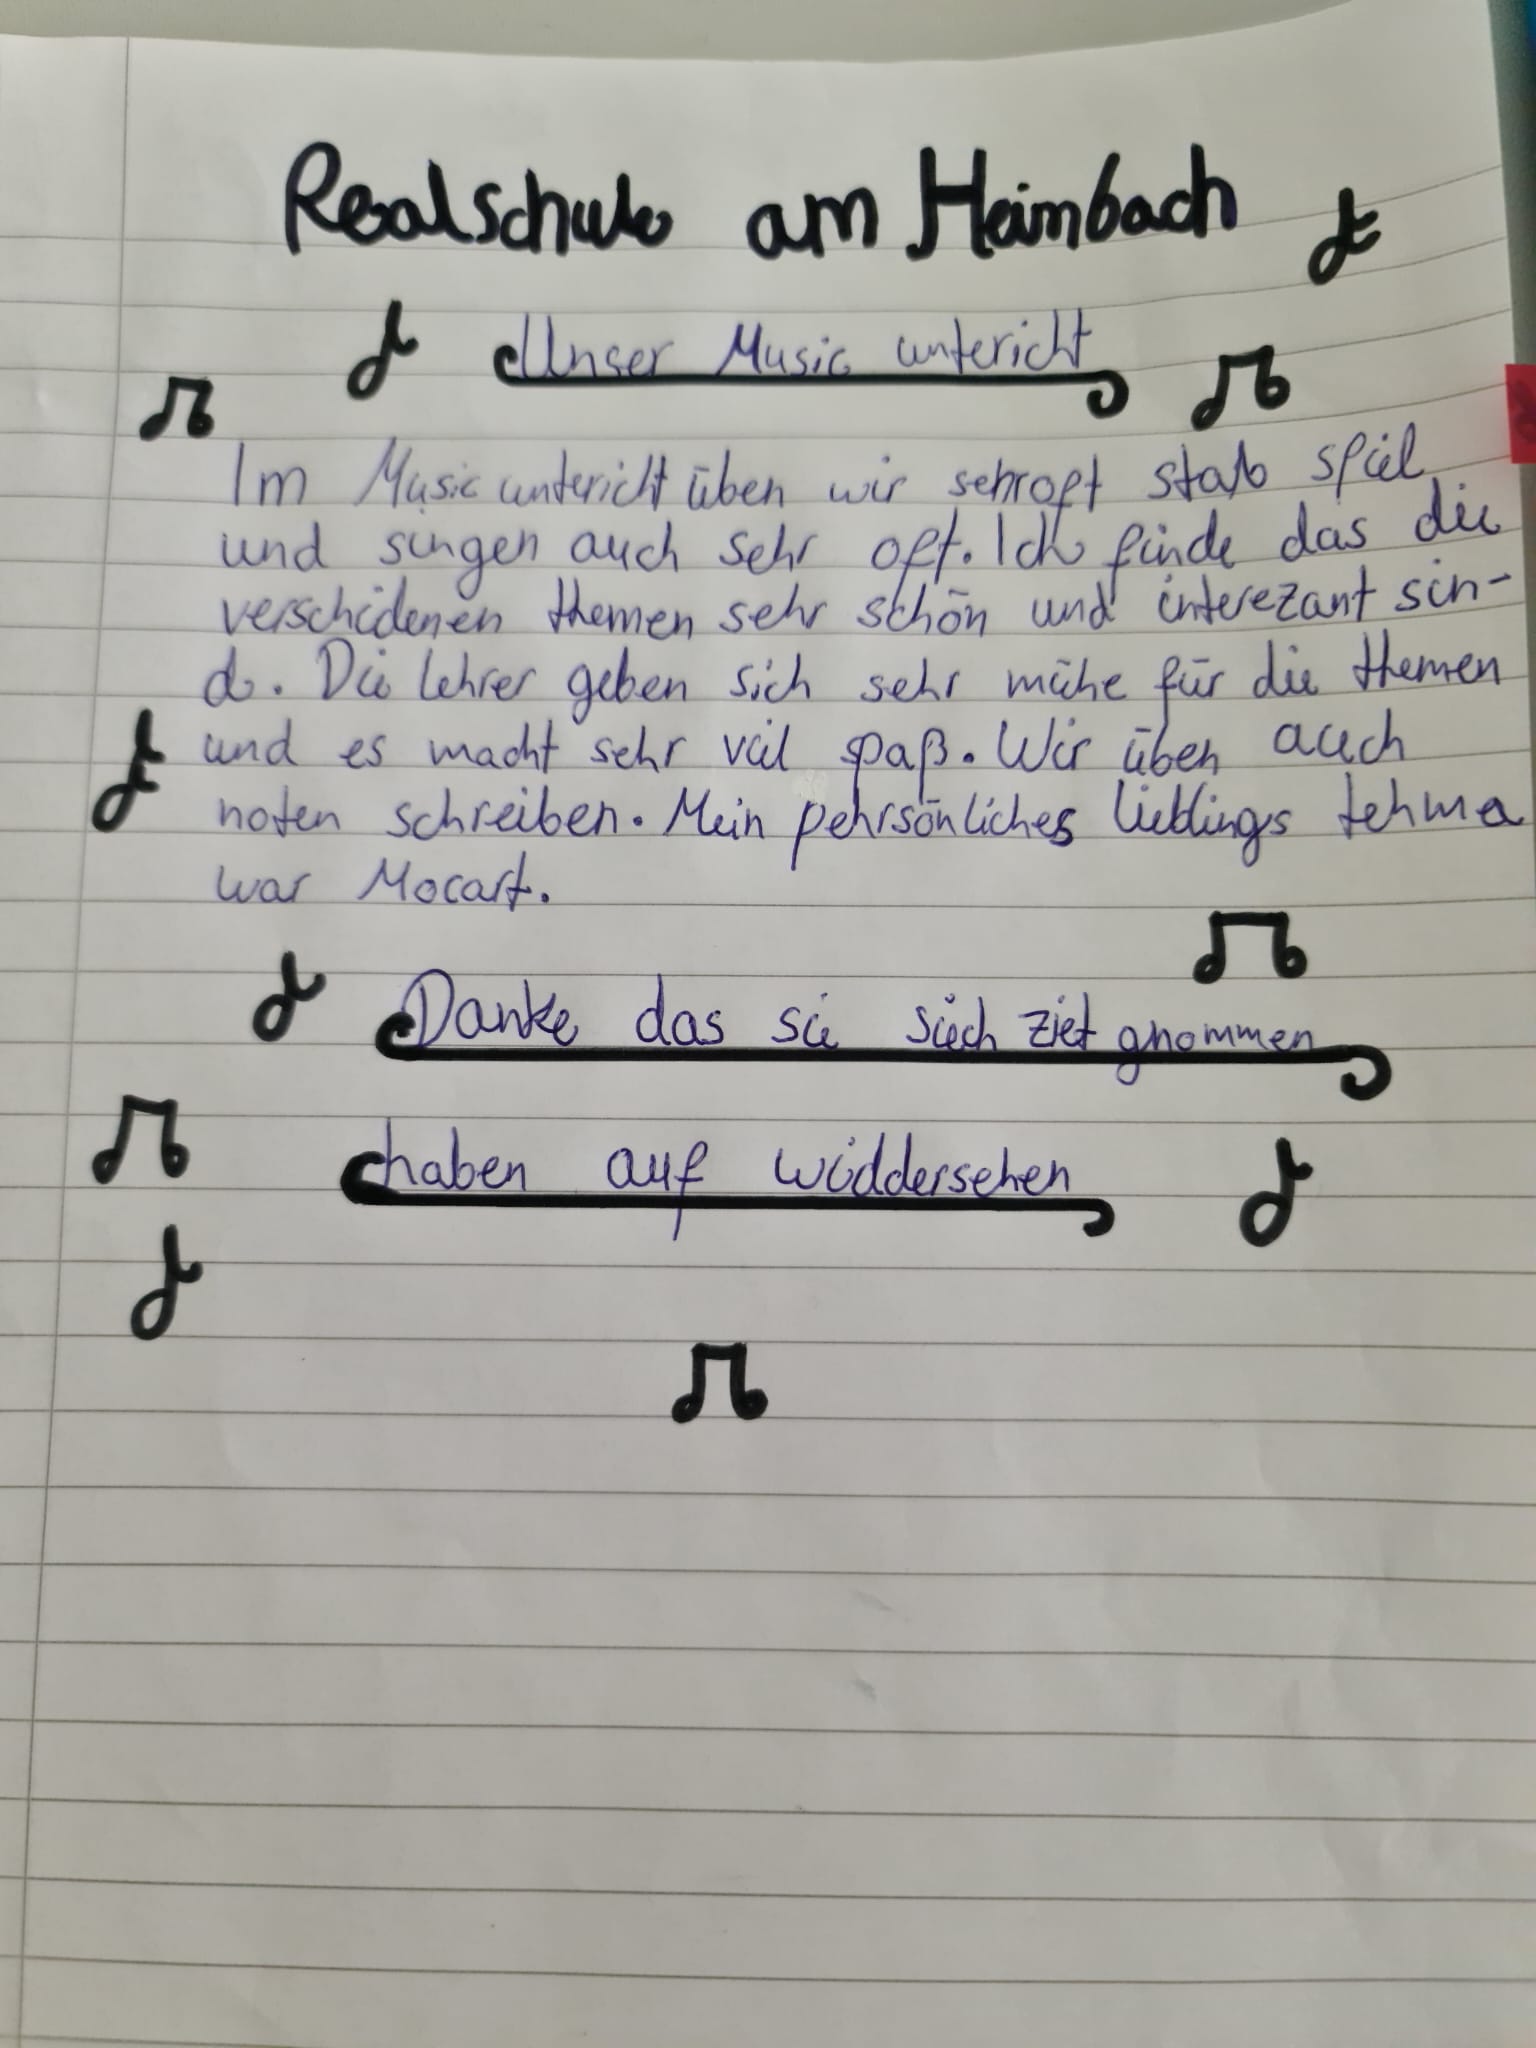 Realschule am Heimbach
Unser Music untericht
Im Music untericht üben wir sehroft stab spiel
und singen auch sehr oft. Ich finde das die
verschidenen themen sehr schön und interezant sin-
d. Die lehrer geben sich sehr mühe für die themen
und es macht sehr viel spaß. Wir üben auch
noten schreiben. Mein pehrsönliches lieblings tehma
war Mocart.
Danke das sie siech ziet gnommen
haben auf widdersehen